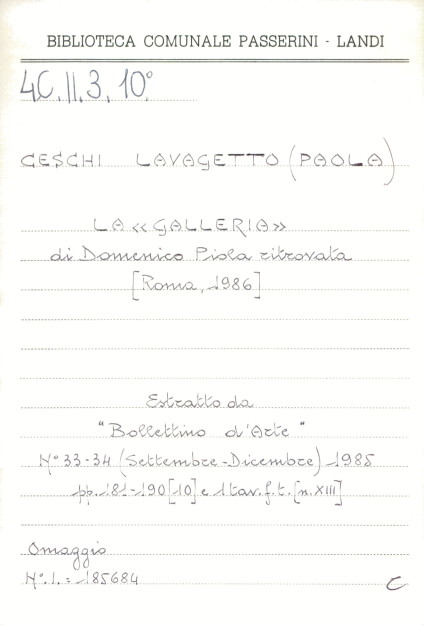 BIBLIOTECA COMUNALE PASSERINI - LANDI
4C.II.3.10°
CESCHI LAVAGETTO (PAOLA)
LA «GALLERIA»
di Domenico Piola ritrovata
[Roma, 1986]
Estratto da
"Bollettino d'Arte"
N° 33-34 (Settembre-Dicembre) 1985
pp. 181-190 [10] e 1 tav. f. t. [n. XIII]
Omaggio
N°. I. = 185684
C